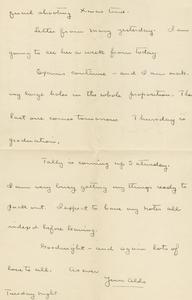 shooting Xmas time.
Letter from Mary yesterday. I am
going to see her a week from today.
Exams continue - and I am mak-
ing large holes in the whole proposition. The
last one comes tomorrow. Thursday is
graduation.
Tally is coming up Saturday.
I am very busy getting my things ready to
pack out. I expect to have my notes all
indexed before leaving.
Goodnight - and again lots of
love to all. As ever
Your Aldo
Tuesday night